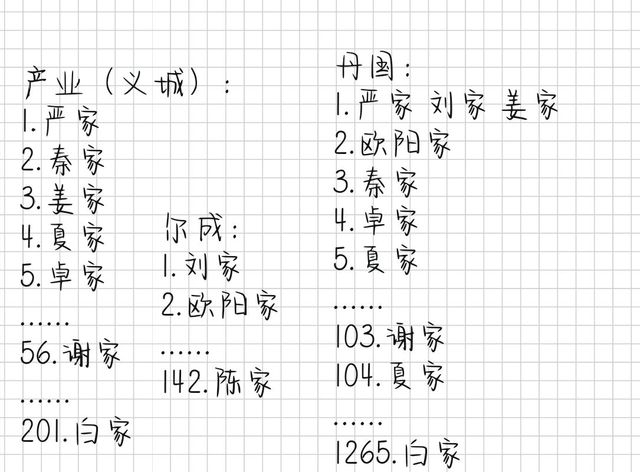 产业（义城）：
1.严家
2.秦家
3.姜家
4.夏家
5.卓家
……
56.谢家
……
201.白家
尔成：
1.刘家
2.欧阳家
……
142.陈家
丹国：
1.严家 刘家 姜家
2.欧阳家
3.秦家
4.卓家
5.夏家
……
103.谢家
104.夏家
……
1265.白家